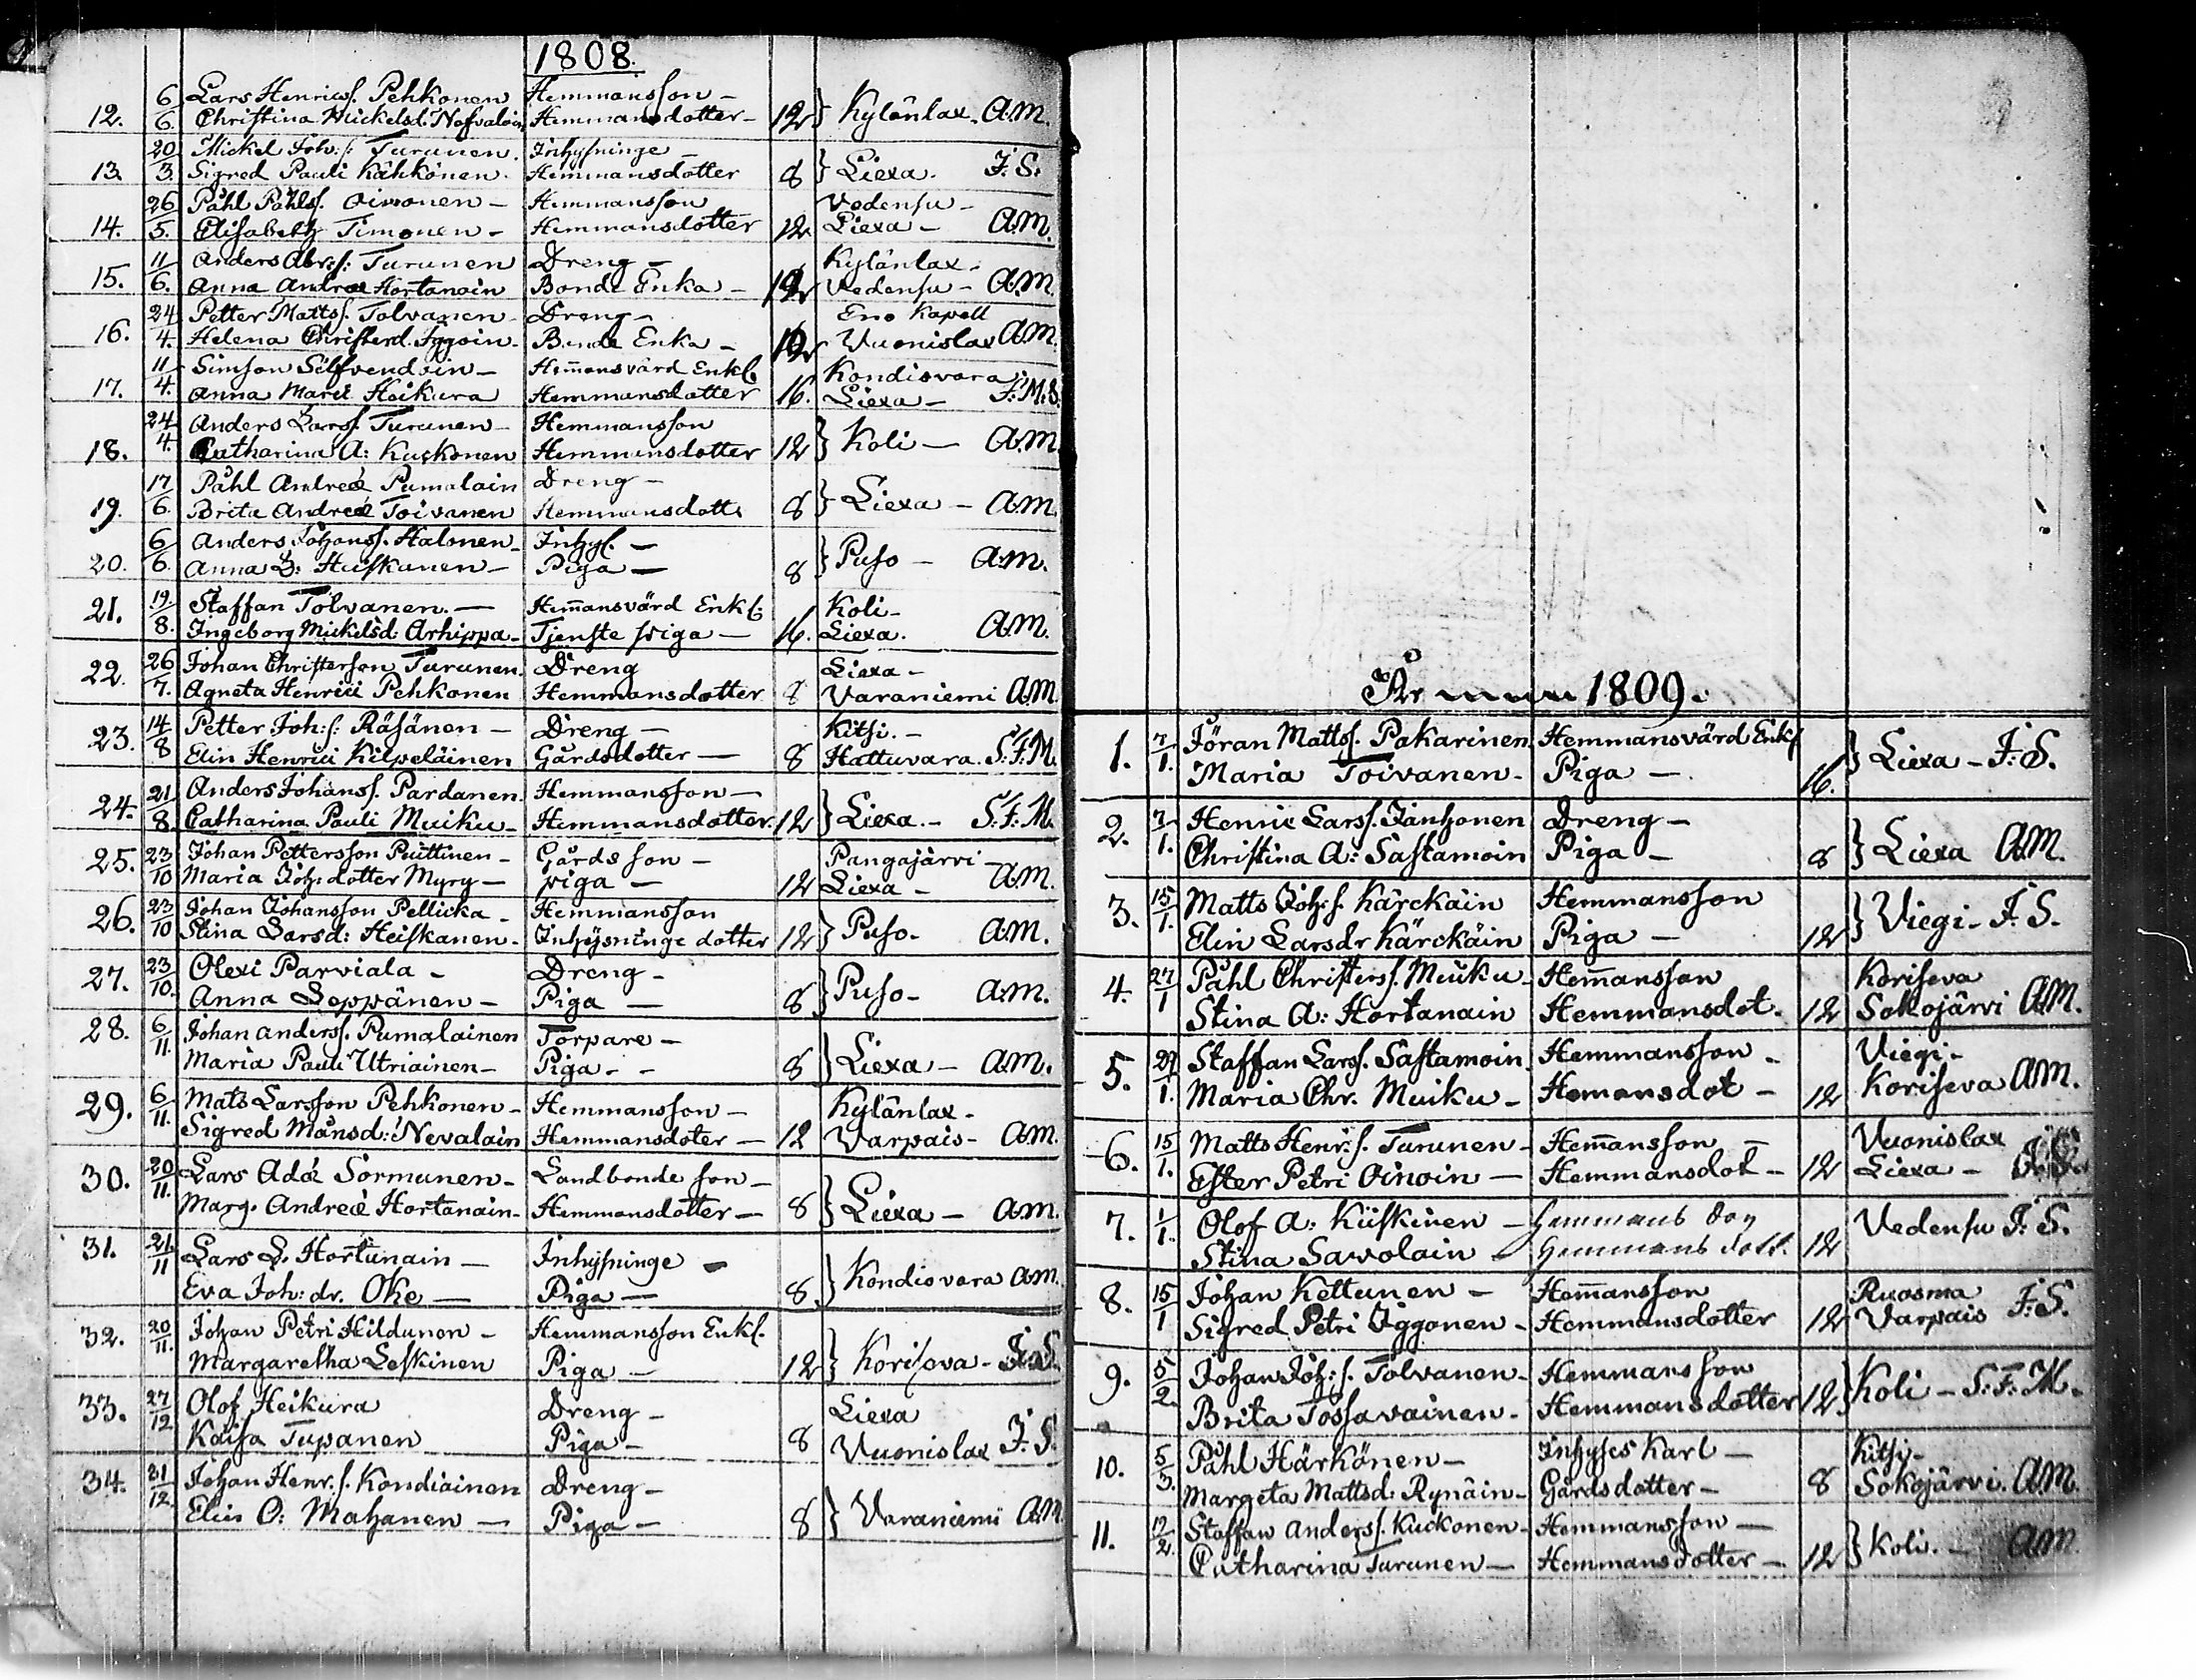 1808.
12. 6/6. Lars Henricsf. Pehkonen Hemmansson -
Christina Mickelsd. Nefvalain Hemmansdotter - 12 } Kylänlax. A.M.
13. 20/3. Mickel Joh: s: Turunen. Inhysninge -
Sigred Pauli Kähkönen. Hemmansdotter 8 } Liexa. J. S.
14. 26/5. Påhl Påhlss. Oinonen - Hemmansson Vedensu -
Elisabeth Timonen - Hemmansdotter 12 Liexa - A.M.
15. 11/6. Anders Abr: s: Turunen Dreng - Kylänlax -
Anna Andreæ Hortanain Bonde Enka - 12 Vedensu - A.M.
16. 24/4. Petter Mattss. Tolvanen - Dreng - Eno Kapell
Helena Christerd. Iggoin - Bonde Enka - Vuonislax A.M.
17. 11/4. Simson Silfvendoin - Hem̄ansvärd Enkl. Kondiovara
Anna Marci Heikura Hemmansdotter 16. Liexa - F.M.S.
18. 24/4. Anders Larss. Turunen - Hemmansson
Catharina A: Kuckonen Hemmansdotter 12 } Koli - A.M.
19. 17/6. Påhl Andreæ Pumalain Dreng -
Brita Andreæ Toivanen Hemmansdott. 8 } Liexa - A.M.
20. 6/6. Anders Johanss. Halonen - Inhys. -
Anna L: Huskanen - Piga - 8 } Puso - A.M.
21. 19/8. Staffan Tolvanen. - Hem̄ansvärd Enkl: Koli -
Ingeborg Mickelsd: Arhippa - Tjenste piga - 16. Liexa. A.M.
22. 26/7. Johan Christerson Turunen. Dreng Liexa -
Agneta Henrici Pehkonen Hemmansdotter 8 Varaniemi A.M.
23. 14/8 Petter Joh: s: Räsänen - Dreng - Kitsi. -
Elin Henrici Kilpeläinen Gårdsdotter - 8 Hattuvara. S. F. M.
24. 21/8 Anders Johanss. Pardanen. Hemmansson -
Catharina Pauli Muiku - Hemmansdotter. 12 } Liexa. - S. F. M.
25. 23/10 Johan Pettersson Puttinen - Gårds son - Pangajärvi -
Maria Joh: dotter Myry - piga - 12 Liexa - A.M.
26. 23/10 Johan Johansson Pellicka - Hemmansson
Stina Larsd: Heiskanen. Inhysninge dotter 12 } Puso - A.M.
27. 23/10. Olexi Parviala - Dreng -
Anna Seppänen - Piga - 8 } Puso - A.M.
28. 6/11. Johan Anderss. Pumalainen Torpare -
Maria Pauli Utriainen - Piga - - 8 } Liexa - A.M.
29. 6/11. Mats Larsson Pehkonen - Hemmansson - Kylänlax -
Sigred Månsd: Nevalain Hemmansdoter - 12 Varpais - A.M.
30. 20/11. Lars Adæ Sormunen - Landbonde son -
Marg. Andreæ Hortanain - Hemmansdotter - 8 } Liexa - A.M.
31. 21/11 Lars L. Hortunain - Inhysninge -
Eva Joh: dr. Oke - Piga - 8 } Kondiovara A.M.
32. 20/11. Johan Petri Hildunen - Hemmansson Enkl.
Margaretha Leskinen Piga - 12 } Koriseva - J. S.
33. 27/12. Olof Heikura Dreng - Liexa
Kaisa Tupanen Piga - 8 Vuonislax J. S.
34. 31/12. Johan Henr. s. Kondiainen Dreng -
Elin O: Mahanen - Piga - 8 } Varaniemi A.M.
År 1809.
1. 7/1. Jöran Mattss. Pakarinen. Hemmansvärd Enkl
Maria Toivanen - Piga - 16. } Liexa - J. S.
2. 7/1. Henric Larss. Jänhonen Dreng -
Christina A: Sastamoin Piga - 8 } Liexa A.M.
3. 15/1. Matts Joh: s. Kärckäin Hemmansson
Elin Larsdr Kärckäin Piga - 12 } Viegi - J. S.
4. 27/1 Påhl Christerss. Muiku - Hem̄ansson Koriseva
Stina A: Hortanain Hemmansdot. 12 Sokojärvi A.M.
5. 27/1. Staffan Larss. Sastamoin. Hemmansson - Viegi -
Maria Chr. Muiku - Hemansdot - 12 Koriseva A.M.
6. 15/1. Matts Henr: s. Turunen - Hem̄ansson - Vuonislax
Ester Petri Oinoin - Hemmansdot - 12 Liexa - J. S.
7. 1/1. Olof A: Kiiskinen - Hemmans Son
Stina Sawolain - Hemmans dott. 12 Vedensu J. S.
8. 15/1 Johan Kettunen - Hem̄ansson Ruosma
Sigred Petri Iggonen - Hemmansdotter 12 Varpais J. S.
9. 5/2. Johan Joh: s. Tolvanen - Hemmansson
Brita Tossavainen - Hemmansdotter 12 } Koli - S. F. M.
10. 5/3. Påhl Härkönen - Inhyses Karl - Kitsi -
Margeta Mattsd: Rynäin - Gårdsdotter - 8 Sokojärvi. A.M.
11. 12/2 Staffan Anderss. Kuckonen - Hemmansson -
Catharina Turunen - Hemmansdotter - 12 } Koli. - A.M.